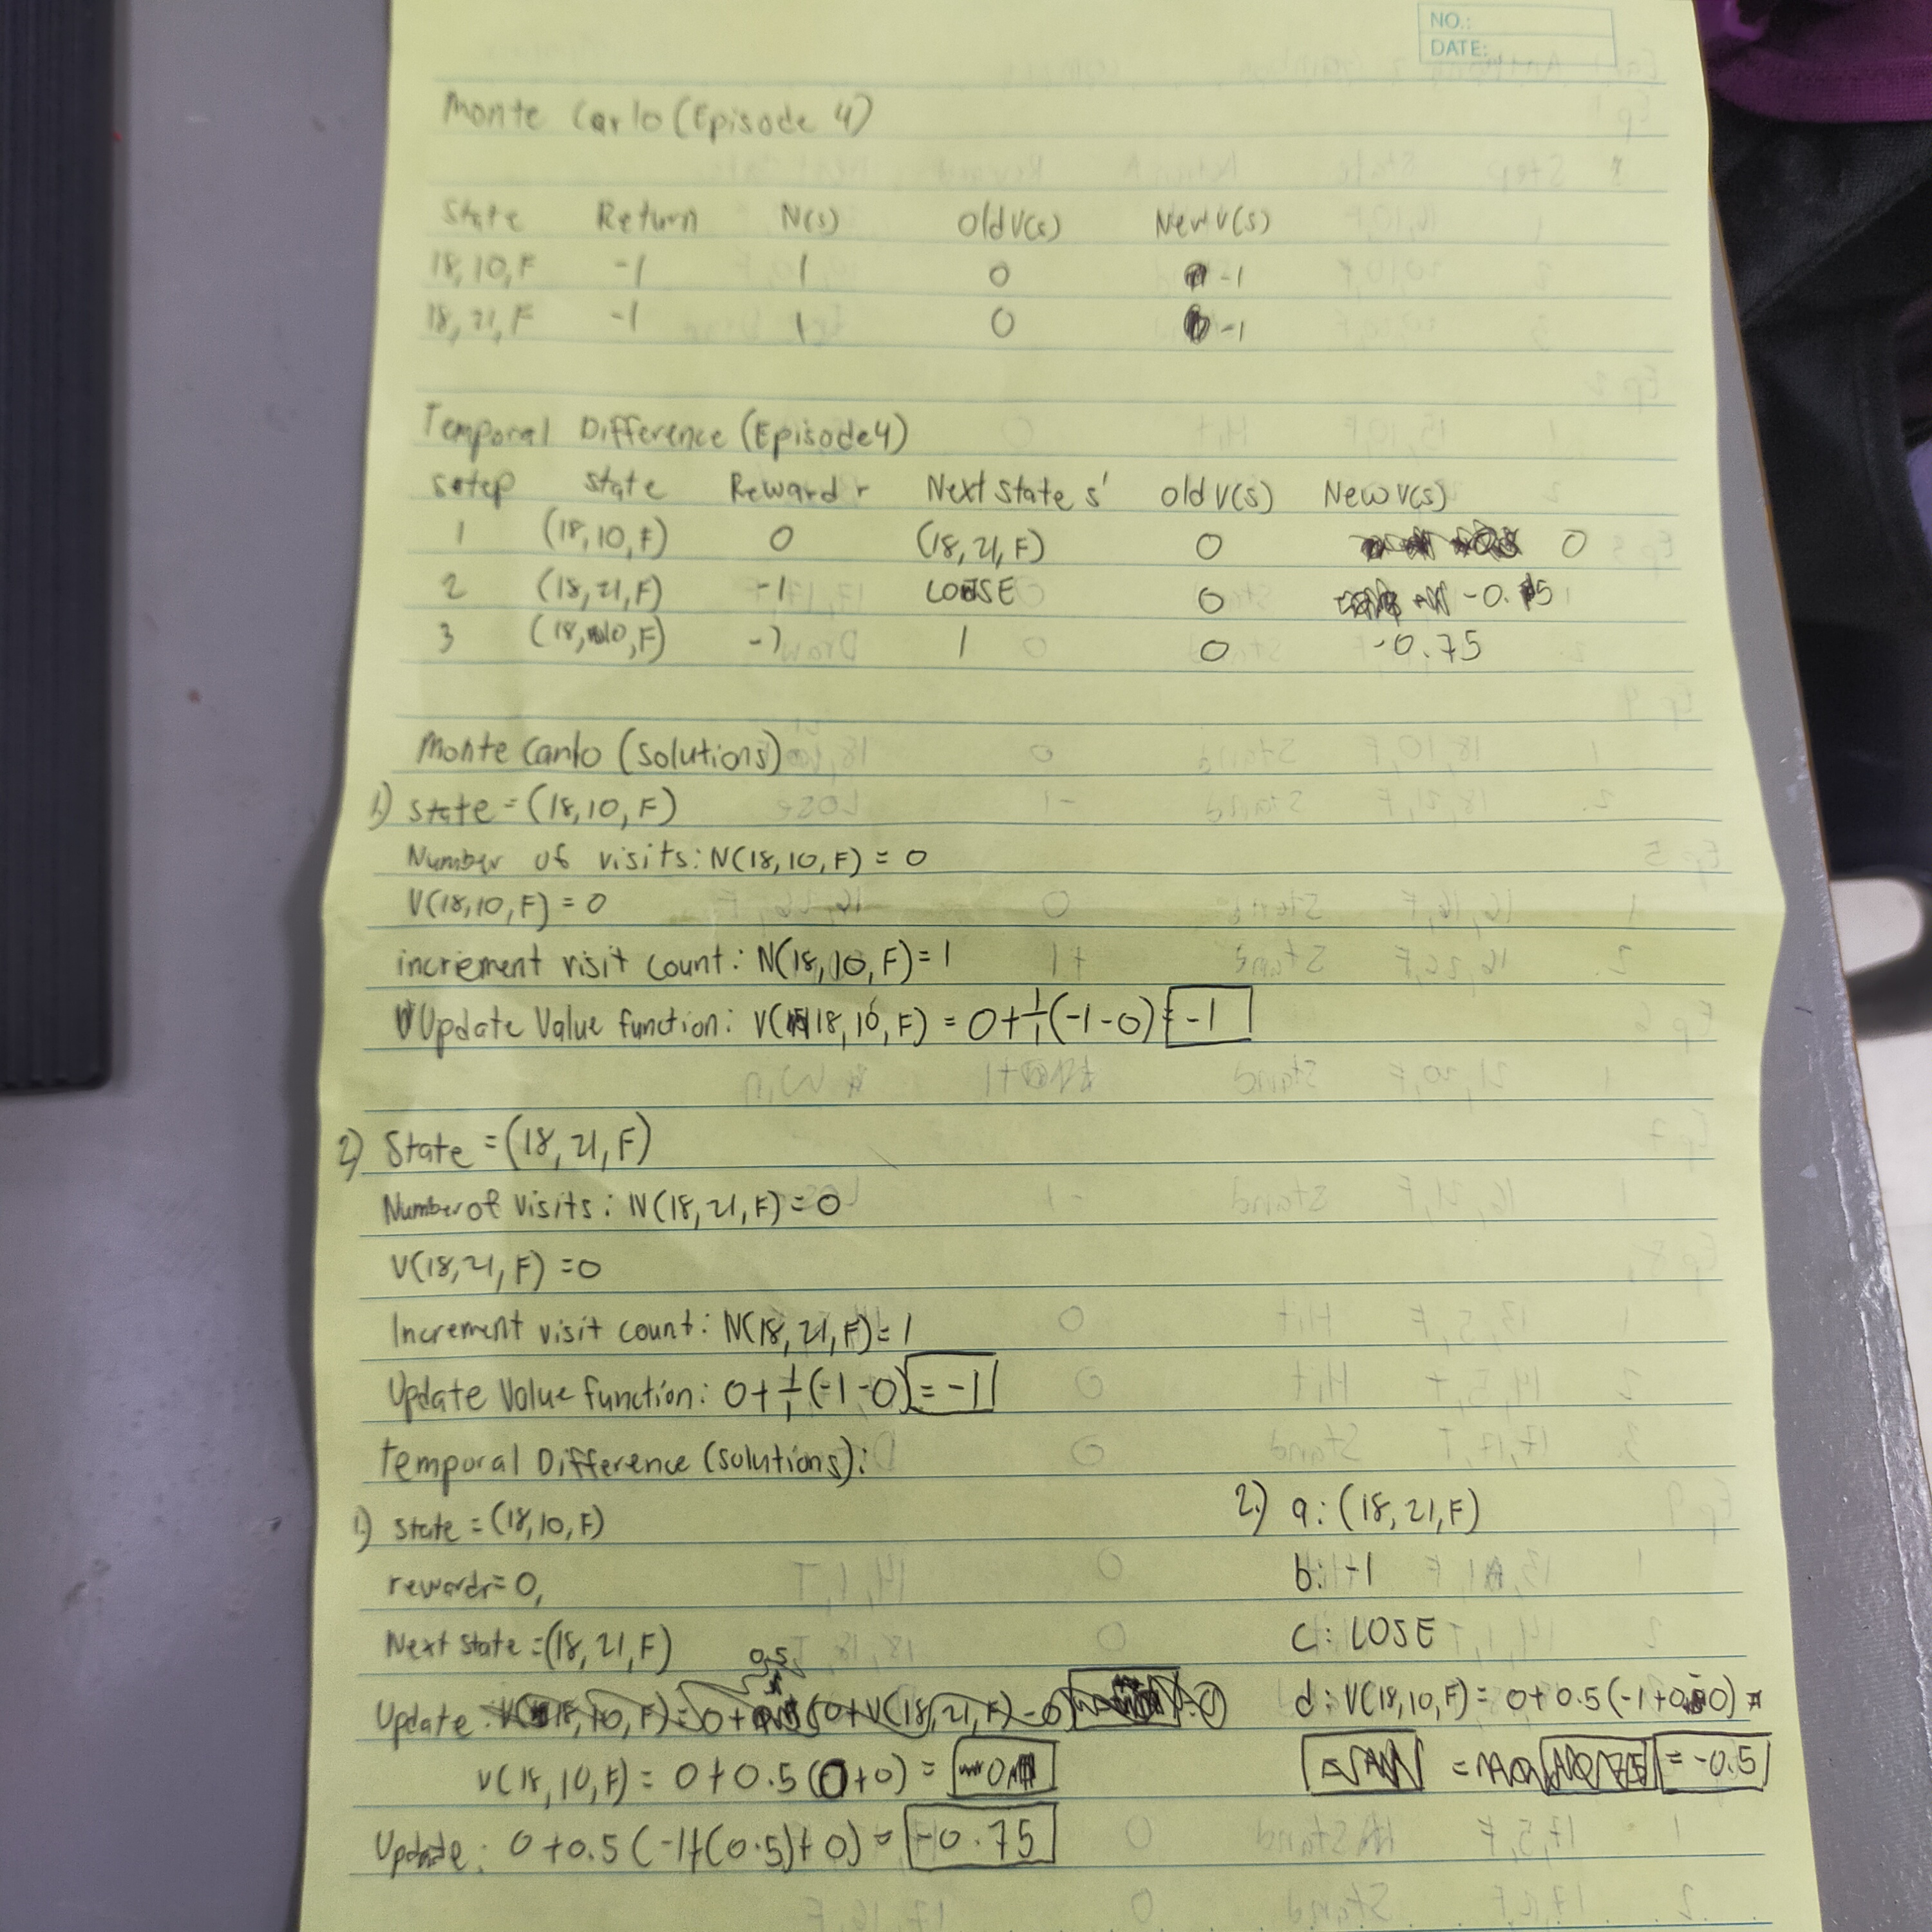 NO.:
DATE:
Monte Carlo (Episode 4)
State Return N(s) Old V(s) New V(s)
18, 10, F -1 1 0 -1
18, 21, F -1 1 0 -1
Temporal Difference (Episode 4)
setep state Reward r Next state s' old V(s) New V(s)
1 (18, 10, F) 0 (18, 21, F) 0 0
2 (18, 21, F) -1 LOSE 0 -0.5
3 (18, 10, F) -1 1 0 -0.75
Monte Carlo (Solutions)
1.) state = (18, 10, F)
Number of visits: N(18, 10, F) = 0
V(18, 10, F) = 0
increment visit count: N(18, 10, F) = 1
Update Value function: V(18, 10, F) = 0 + 1/1 (-1 - 0) = -1
2) State = (18, 21, F)
Number of Visits: N(18, 21, F) = 0
V(18, 21, F) = 0
Increment visit count: N(18, 21, F) = 1
Update Value function: 0 + 1/1 (-1 - 0) = -1
Temporal Difference (solutions):
1.) state = (18, 10, F)
reward r = 0,
Next state = (18, 21, F)
0.5
Update: V(18, 10, F) = 0 + (0 + V(18, 21, F) - 0) = 0
V(18, 10, F) = 0 + 0.5 (0 + 0) = 0
Update: 0 + 0.5 (-1 + (0.5) + 0) = -0.75
2.) a: (18, 21, F)
b: -1
c: LOSE
d: V(18, 10, F) = 0 + 0.5 (-1 + 0 0) =
= -0.5